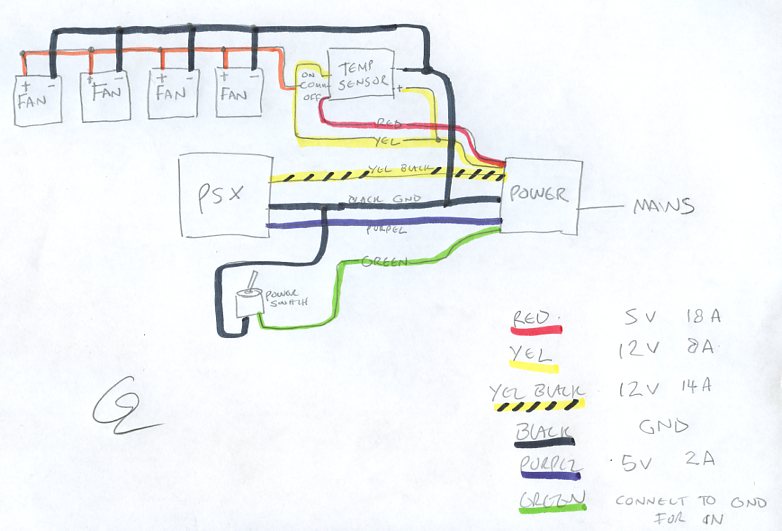 TEMP
SENSOR
ON
COMM
OFF
+ -
FAN
+ -
FAN
+ -
FAN
+ -
FAN
- +
RED
YEL
YEL BLACK
PSX
BLACK GND
PURPEL
POWER
MAINS
GREEN
POWER
SWITCH
RED 5V 18A
YEL 12V 8A
YEL BLACK 12V 14A
BLACK GND
PURPEL 5V 2A
GREEN CONNECT TO GND
FOR ON